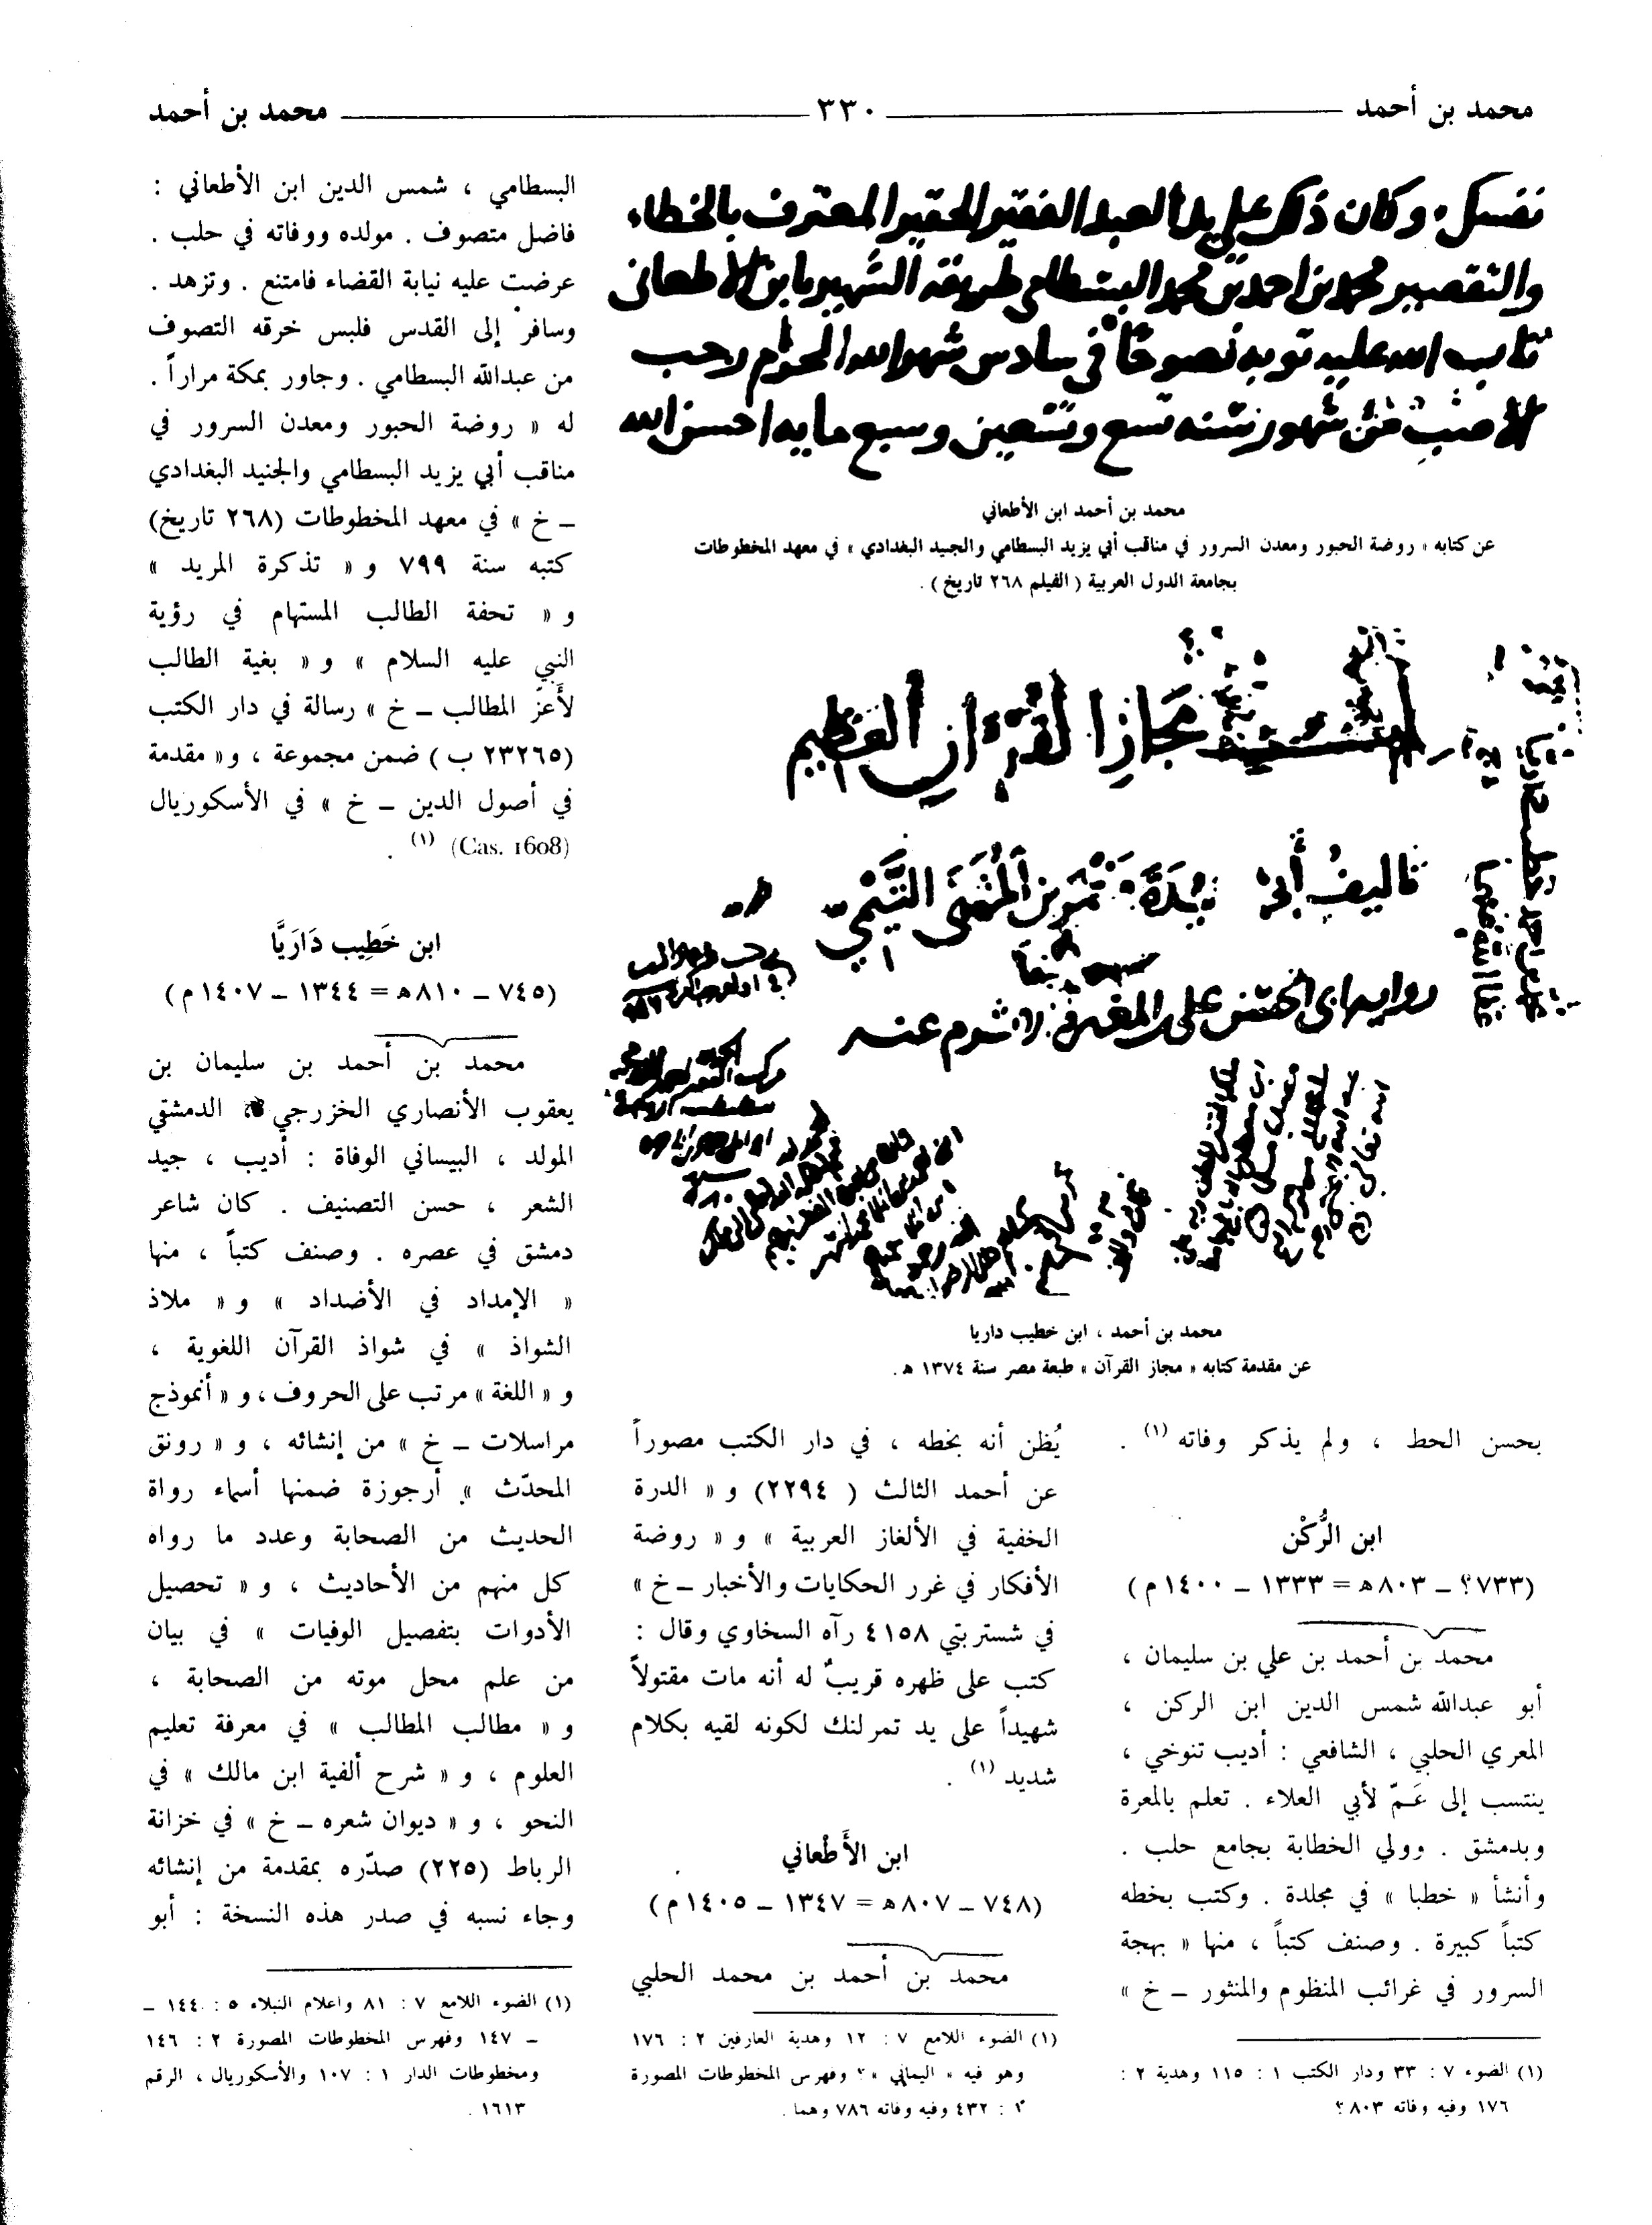 محمد بن أحمد ٣٣٠ محمد بن أحمد
نفسك وكان ذكر على يد العبد الفقير الحقير المعترف بالخطاء
والتقصير محمد بن احمد بن محمد البسطامى طريقة الشهير بابن الاطعانى
تاب الله عليه توبة نصوحا فى سادس شهر الله الحرام رجب
الاصب من شهور سنه تسع وتسعين وسبع مايه احسن الله
محمد بن أحمد ابن الأطعاني
عن كتابه « روضة الحبور ومعدن السرور في مناقب أبي يزيد البسطامي والجنيد البغدادي » في معهد المخطوطات
بجامعة الدول العربية ( الفيلم ٢٦٨ تاريخ ) .
مجاز القرآن العظيم
تاليف أبي عبيدة معمر بن المثنى التيمي
رواية ابى الحسن على بن المغيرة الاثرم عنه
محمد بن أحمد ، ابن خطيب داريا
عن مقدمة كتابه « مجاز القرآن » طبعة مصر سنة ١٣٧٤ هـ .
بحسن الحط ، ولم يذكر وفاته (١) .
ابن الرُّكْن
(٧٣٣؟ – ٨٠٣هـ = ١٣٣٣ – ١٤٠٠م)
محمد بن أحمد بن علي بن سليمان ،
أبو عبدالله شمس الدين ابن الركن ،
المعري الحلبي ، الشافعي : أديب تنوخي ،
ينتسب إلى عَمّ لأبي العلاء . تعلم بالمعرة
وبدمشق . وولي الخطابة بجامع حلب .
وأنشأ « خطبا » في مجلدة . وكتب بخطه
كتباً كبيرة . وصنف كتباً ، منها « بهجة
السرور في غرائب المنظوم والمنثور – خ »
(١) الضوء ٧ : ٣٣ ودار الكتب ١ : ١١٥ وهدية ٢ :
١٧٦ وفيه وفاته ٨٠٣ ؟
يُظن أنه بخطه ، في دار الكتب مصوراً
عن أحمد الثالث ( ٢٢٩٤) و « الدرة
الخفية في الألغاز العربية » و « روضة
الأفكار في غرر الحكايات والأخبار – خ »
في شستربتي ٤١٥٨ رآه السخاوي وقال :
كتب على ظهره قريبٌ له أنه مات مقتولاً
شهيداً على يد تمرلنك لكونه لقيه بكلام
شديد (١) .
ابن الأَطْعاني
(٧٤٨ – ٨٠٧هـ = ١٣٤٧ – ١٤٠٥م)
محمد بن أحمد بن محمد الحلبي
(١) الضوء اللامع ٧ : ١٢ وهدية العارفين ٢ : ١٧٦
وهو فيه « اليماني »؟ وفهرس المخطوطات المصورة
٢ : ٤٣٢ وفيه وفاته ٧٨٦ وهما .
البسطامي ، شمس الدين ابن الأطعاني :
فاضل متصوف . مولده ووفاته في حلب .
عرضت عليه نيابة القضاء فامتنع . وتزهد .
وسافر إلى القدس فلبس خرقه التصوف
من عبدالله البسطامي . وجاور بمكة مراراً .
له « روضة الحبور ومعدن السرور في
مناقب أبي يزيد البسطامي والجنيد البغدادي
– خ » في معهد المخطوطات (٢٦٨ تاريخ)
كتبه سنة ٧٩٩ و « تذكرة المريد »
و « تحفة الطالب المستهام في رؤية
النبي عليه السلام » و « بغية الطالب
لأَعزّ المطالب – خ » رسالة في دار الكتب
(٢٣٢٦٥ ب) ضمن مجموعة ، و« مقدمة
في أصول الدين – خ » في الأسكوريال
(Cas. 1608) (١) .
ابن خَطِيب دَارَيَّا
(٧٤٥ – ٨١٠هـ = ١٣٤٤ – ١٤٠٧م)
محمد بن أحمد بن سليمان بن
يعقوب الأنصاري الخزرجي ، الدمشقي
المولد ، البيساني الوفاة : أديب ، جيد
الشعر ، حسن التصنيف . كان شاعر
دمشق في عصره . وصنف كتباً ، منها
« الإمداد في الأضداد » و « ملاذ
الشواذ » في شواذ القرآن اللغوية ،
و « اللغة » مرتب على الحروف ، و « أنموذج
مراسلات – خ » من إنشائه ، و « رونق
المحدّث » أرجوزة ضمنها أسماء رواة
الحديث من الصحابة وعدد ما رواه
كل منهم من الأحاديث ، و « تحصيل
الأدوات بتفصيل الوفيات » في بيان
من علم محل موته من الصحابة ،
و « مطالب المطالب » في معرفة تعليم
العلوم ، و « شرح ألفية ابن مالك » في
النحو ، و « ديوان شعره – خ » في خزانة
الرباط (٢٢٥) صدّره بمقدمة من إنشائه
وجاء نسبه في صدر هذه النسخة : أبو
(١) الضوء اللامع ٧ : ٨١ واعلام النبلاء ٥ : ١٤٤ –
– ١٤٧ وفهرس المخطوطات المصورة ٢ : ١٤٦
ومخطوطات الدار ١ : ١٠٧ والأسكوريال ، الرقم
١٦١٣ .